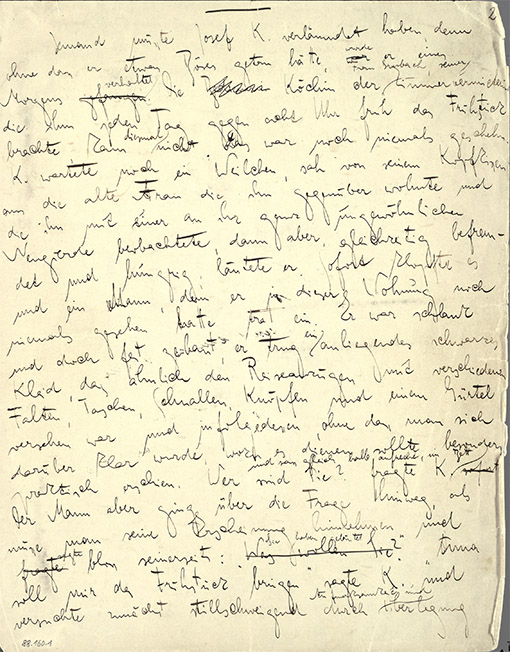 2
Jemand musste Josef K. verläumdet haben, denn
ohne dass er etwas Böses getan hätte, wurde er eines
Morgens verhaftet. Die Köchin der Zimmervermieterin
Frau Grubach, seiner
die ihm jeden Tag gegen acht Uhr früh das Frühstück
brachte kam diesmal nicht. Das war noch niemals geschehn.
K. wartete noch ein Weilchen, sah von seinem Kopfkissen
aus die alte Frau die ihm gegenüber wohnte und
die ihn mit einer an ihr ganz ungewöhnlichen
Neugierde beobachtete, dann aber, gleichzeitig befrem-
det und hungrig, läutete er. Sofort klopfte es
und ein Mann, den er in dieser Wohnung noch
niemals gesehen hatte trat ein. Er war schlank
und doch fest gebaut, er trug ein anliegendes schwarzes
Kleid, das ähnlich den Reiseanzügen mit verschiedenen
Falten, Taschen, Schnallen, Knöpfen und einem Gürtel
versehen war und infolgedessen, ohne dass man sich
darüber klar wurde, wozu es dienen sollte, besonders
praktisch erschien. Wer sind Sie? fragte K.
und sass gleich halb aufrecht im Bett
Der Mann aber ging über die Frage hinweg, als
müsse man seine Erscheinung hinnehmen und
sagte bloss seinerseits: "Sie haben geläutet?" "Anna
soll mir das Frühstück bringen" sagte K. und
versuchte zunächst stillschweigend durch Aufmerksamkeit und Überlegung
88.160.1